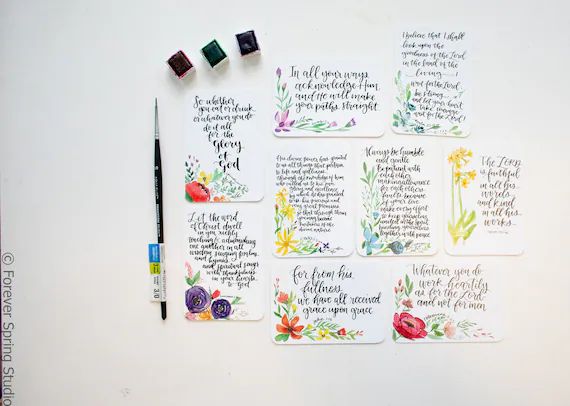 So whether
you eat or drink
or whatever you do
do it all
for the
Glory
of
God
In all your ways
acknowledge Him,
and He will make
your paths straight.
I believe that I shall
look upon the
goodness of the Lord
in the land of the
living
wait for the Lord
be strong
and let your heart
take courage
and wait for the Lord!
His divine power has granted
to us all things that pertain
to life and godliness,
through the knowledge of him
who called us to his own
glory and excellence
by which he has granted
to us his precious and
very great promises
so that through them
divine nature
Always be humble
and gentle
Be patient with
each other,
making allowance
for each other's
faults because
of your love
make every effort
to keep yourselves
united in the Spirit
binding yourselves
together with peace
The LORD
is faithful
in all his
words
and kind
in all his
works.
Let the word
of Christ dwell
in you richly
teaching & admonishing
one another in all
wisdom singing psalms
and hymns
and spiritual songs
with thankfulness
in your hearts
to God
for from his
fullness
we have all received
grace upon grace
Whatever you do
work heartily
as for the Lord
and not for men
3/0
© Forever Spring Studio